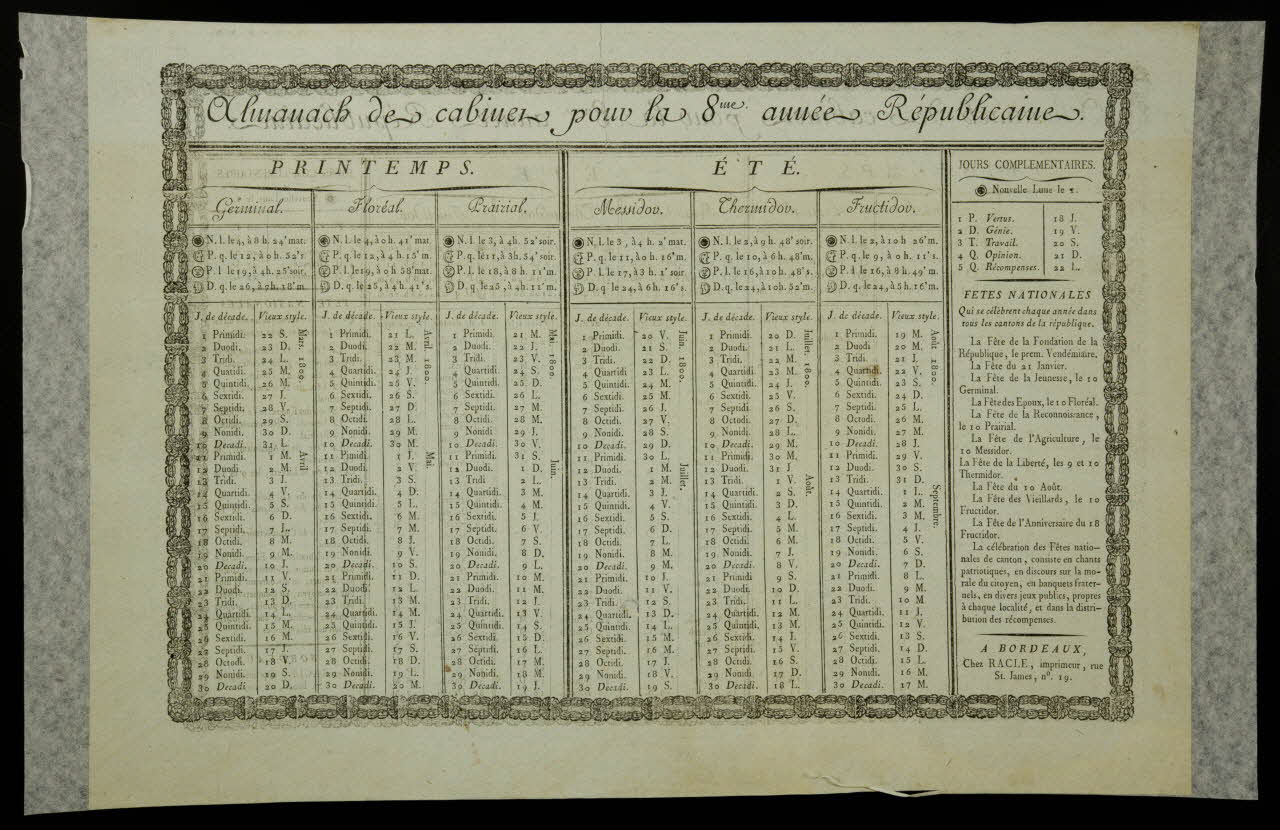 Almanach de cabinet pour la 8me. année Républicaine.
PRINTEMPS.
Germinal.
N. l. le 4, à 8 h. 24' mat.
P. q. le 12, à 0 h. 52' s
P. l le 19, à 4h. 25' soir.
D. q. le 26, à 7h. 18' m.
J. de décade. Vieux style.
Mars 1800.
1 Primidi. 22 S.
2 Duodi. 23 D.
3 Tridi. 24 L.
4 Quatidi 25 M.
5 Quintidi 26 M.
6 Sextidi 27 J.
7 Septidi 28 V.
8 Octidi 29 S.
9 Nonidi 30 D.
10 Decadi. 31 L.
Avril
11 Primidi. 1 M.
12 Duodi. 2 M.
13 Tridi 3 J.
14 Quartidi 4 V.
15 Quintidi 5 S.
16 Sextidi 6 D.
17 Septidi 7 L.
18 Octidi 8 M.
19 Nonidi. 9 M.
20 Decadi. 10 J.
21 Primidi. 11 V.
22 Duodi. 12 S.
23 Tridi. 13 D.
24 Quartidi 14 L.
25 Quintidi 15 M.
26 Sextidi 16 M.
27 Septidi 17 J.
28 Octodi 18 V.
29 Nonidi. 19 S.
30 Decadi 20 D.
Floréal.
N. l. le 4, à 0 h. 41' mat
P. q. le 12, à 4 h. 15' m.
P. l. le 19, à 0 h 58' mat.
D. q. le 25, à 4 h. 41' s.
J. de décade. Vieux style.
Avril 1800.
1 Primidi. 21 L.
2 Duodi. 22 M.
3 Tridi. 23 M.
4 Quartidi. 24 J.
5 Quintidi. 25 V.
6 Sextidi. 26 S.
7 Septidi. 27 D.
8 Octidi. 28 L.
9 Nonidi 29 M.
10 Decadi. 30 M.
Mai.
11 Pimidi. 1 J.
12 Duodi. 2 V.
13 Tridi. 3 S.
14 Quartidi. 4 D.
15 Quintidi. 5 L.
16 Sextidi. 6 M.
17 Septidi. 7 M.
18 Octidi. 8 J.
19 Nonidi. 9 V.
20 Decadi. 10 S.
21 Primidi. 11 D.
22 Duodi. 12 L.
23 Tridi. 13 M.
24 Quartidi. 14 M.
25 Quintidi. 15 J.
26 Sextidi. 16 V.
27 Septidi. 17 S.
28 Octidi. 18 D.
29 Nonidi. 19 L.
30 Decadi. 20 M.
Prairial.
N. l. le 3, à 4h. 52' soir.
P. q. le 11, à 3h. 54' soir.
P. l. le 18, à 8 h 11' m.
D. q. le 25, à 4 h. 11' m.
J. de décade. Vieux style.
Mai 1800.
1 Primidi. 21 M.
2 Duodi. 22 J.
3 Tridi. 23 V.
4 Quartidi. 24 S.
5 Quintidi. 25 D.
6 Sextidi. 26 L.
7 Septidi. 27 M.
8 Octidi. 28 M.
9 Nonidi. 29 J.
10 Decadi. 30 V.
11 Primidi. 31 S.
Juin.
12 Duodi. 1 D.
13 Tridi. 2 L.
14 Quartidi. 3 M.
15 Quintidi. 4 M.
16 Sextidi. 5 J.
17 Septidi. 6 V.
18 Octidi. 7 S.
19 Nonidi. 8 D.
20 Decadi. 9 L.
21 Primidi 10 M.
22 Duodi. 11 M.
23 Tridi. 12 J.
24 Quartidi. 13 V.
25 Quintidi. 14 S.
26 Sextidi. 15 D.
27 Septidi. 16 L.
28 Octidi. 17 M.
29 Nonidi. 18 M.
30 Decadi. 19 J.
ÉTÉ.
Messidor.
N. l. le 3, à 4 h. 2' mat.
P. q. le 11, à 0h. 16' m.
P. l. le 17, à 3 h. 1' soir
D. q. le 24, à 6h. 16' s.
J. de décade. Vieux style.
Juin 1800.
1 Primidi. 20 V.
2 Duodi. 21 S.
3 Tridi. 22 D.
4 Quartidi 23 L.
5 Quintidi 24 M.
6 Sextidi. 25 M.
7 Septidi. 26 J.
8 Octodi 27 V.
9 Nonidi. 28 S.
10 Decadi. 29 D.
11 Primidi 30 L.
Juillet.
12 Duodi. 1 M.
13 Tridi. 2 M.
14 Quartidi. 3 J.
15 Quintidi. 4 V.
16 Sextidi. 5 S.
17 Septidi. 6 D.
18 Octidi. 7 L.
19 Nonidi. 8 M.
20 Decadi. 9 M.
21 Primidi 10 J.
22 Duodi. 11 V.
23 Tridi. 12 S.
24 Quartidi. 13 D.
25 Quintidi. 14 L.
26 Sextidi 15 M.
27 Septidi. 16 M.
28 Octidi. 17 J.
29 Nonidi. 18 V.
30 Decidi. 19 S.
Thermidor.
N. l. le 2, à 9h. 48' soir.
P. q. le 10, à 6h. 48' m.
P. l. le 16, à 10 h. 48' s.
D. q. le 24, à 10h. 52' m.
J. de décade. Vieux style.
Juillet. 1800.
1 Primidi. 20 D.
2 Duodi. 21 L.
3 Tridi. 22 M.
4 Quartidi. 23 M.
5 Quintidi. 24 J.
6 Sextidi. 25 V.
7 Septidi. 26 S.
8 Octidi. 27 D.
9 Nonidi. 28 L.
10 Decadi. 29 M.
11 Primidi. 30 M.
12 Duodi. 31 J
Août.
13 Tridi. 1 V.
14 Quartidi. 2 S.
15 Quintidi. 3 D.
16 Sextidi. 4 L.
17 Septidi. 5 M.
18 Octidi. 6 M.
19 Nonidi. 7 J.
20 Decadi. 8 V.
21 Primidi 9 S.
22 Duodi. 10 D.
23 Tridi. 11 L.
24 Quartidi. 12 M.
25 Quintidi. 13 M.
26 Sextidi. 14 J.
27 Septidi. 15 V.
28 Octidi. 16 S.
29 Nonidi. 17 D.
30 Decadi. 18 L.
Fructidor.
N. l. le 2, à 10 h 26' m.
P. q. le 9, à 0 h. 11' s.
P. l le 16, à 8h. 49' m.
D. q. le 24, à 5h. 16' m.
J. de décade. Vieux style.
Août 1800.
1 Primidi. 19 M.
2 Duodi. 20 M.
3 Tridi. 21 J.
4 Quartidi. 22 V.
5 Quintidi. 23 S.
6 Sextidi. 24 D.
7 Septidi. 25 L.
8 Octidi. 26 M.
9 Nonidi. 27 M.
10 Decadi. 28 J.
11 Primidi. 29 V.
12 Duodi. 30 S.
13 Tridi. 31 D.
Septembre.
14 Quartidi. 1 L.
15 Quintidi. 2 M.
16 Sextidi. 3 M.
17 Septidi. 4 J.
18 Octidi. 5 V.
19 Nonidi. 6 S.
20 Decadi. 7 D.
21 Primidi. 8 L.
22 Duodi. 9 M.
23 Tridi. 10 M
24 Quartidi. 11 J.
25 Quintidi. 12 V.
26 Sextidi. 13 S.
27 Septidi. 14 D.
28 Octidi. 15 L.
29 Nonidi. 16 M.
30 Decadi. 17 M.
JOURS COMPLEMENTAIRES.
Nouvelle Lune le 1.
1 P. Vertus. 18 J.
2 D. Génie. 19 V.
3 T. Travail. 20 S.
4 Q. Opinion. 21 D.
5 Q. Récompenses. 22 L.
FETES NATIONALES
Qui se célèbrent chaque année dans
tous les cantons de la république.
La Fête de la Fondation de la
République, le prem. Vendémiaire.
La Fête du 21 Janvier.
La Fête de la Jeunesse, le 10
Germinal.
La Fête des Epoux, le 10 Floréal.
La Fête de la Reconnoissance,
le 10 Prairial.
La Fête de l'Agriculture, le
10 Messidor.
La Fête de la Liberté, les 9 et 10
Thermidor.
La Fête du 10 Août.
La Fête des Vieillards, le 10
Fructidor.
La Fête de l'Anniversaire du 18
Fructidor.
La célébration des Fêtes natio-
nales de canton, consiste en chants
patriotiques, en discours sur la mo-
rale du citoyen, en banquets frater-
nels, en divers jeux publics, propres
à chaque localité, et dans la distri-
bution des récompenses.
A BORDEAUX,
Chez RACLE, imprimeur, rue
St. James, no. 19.